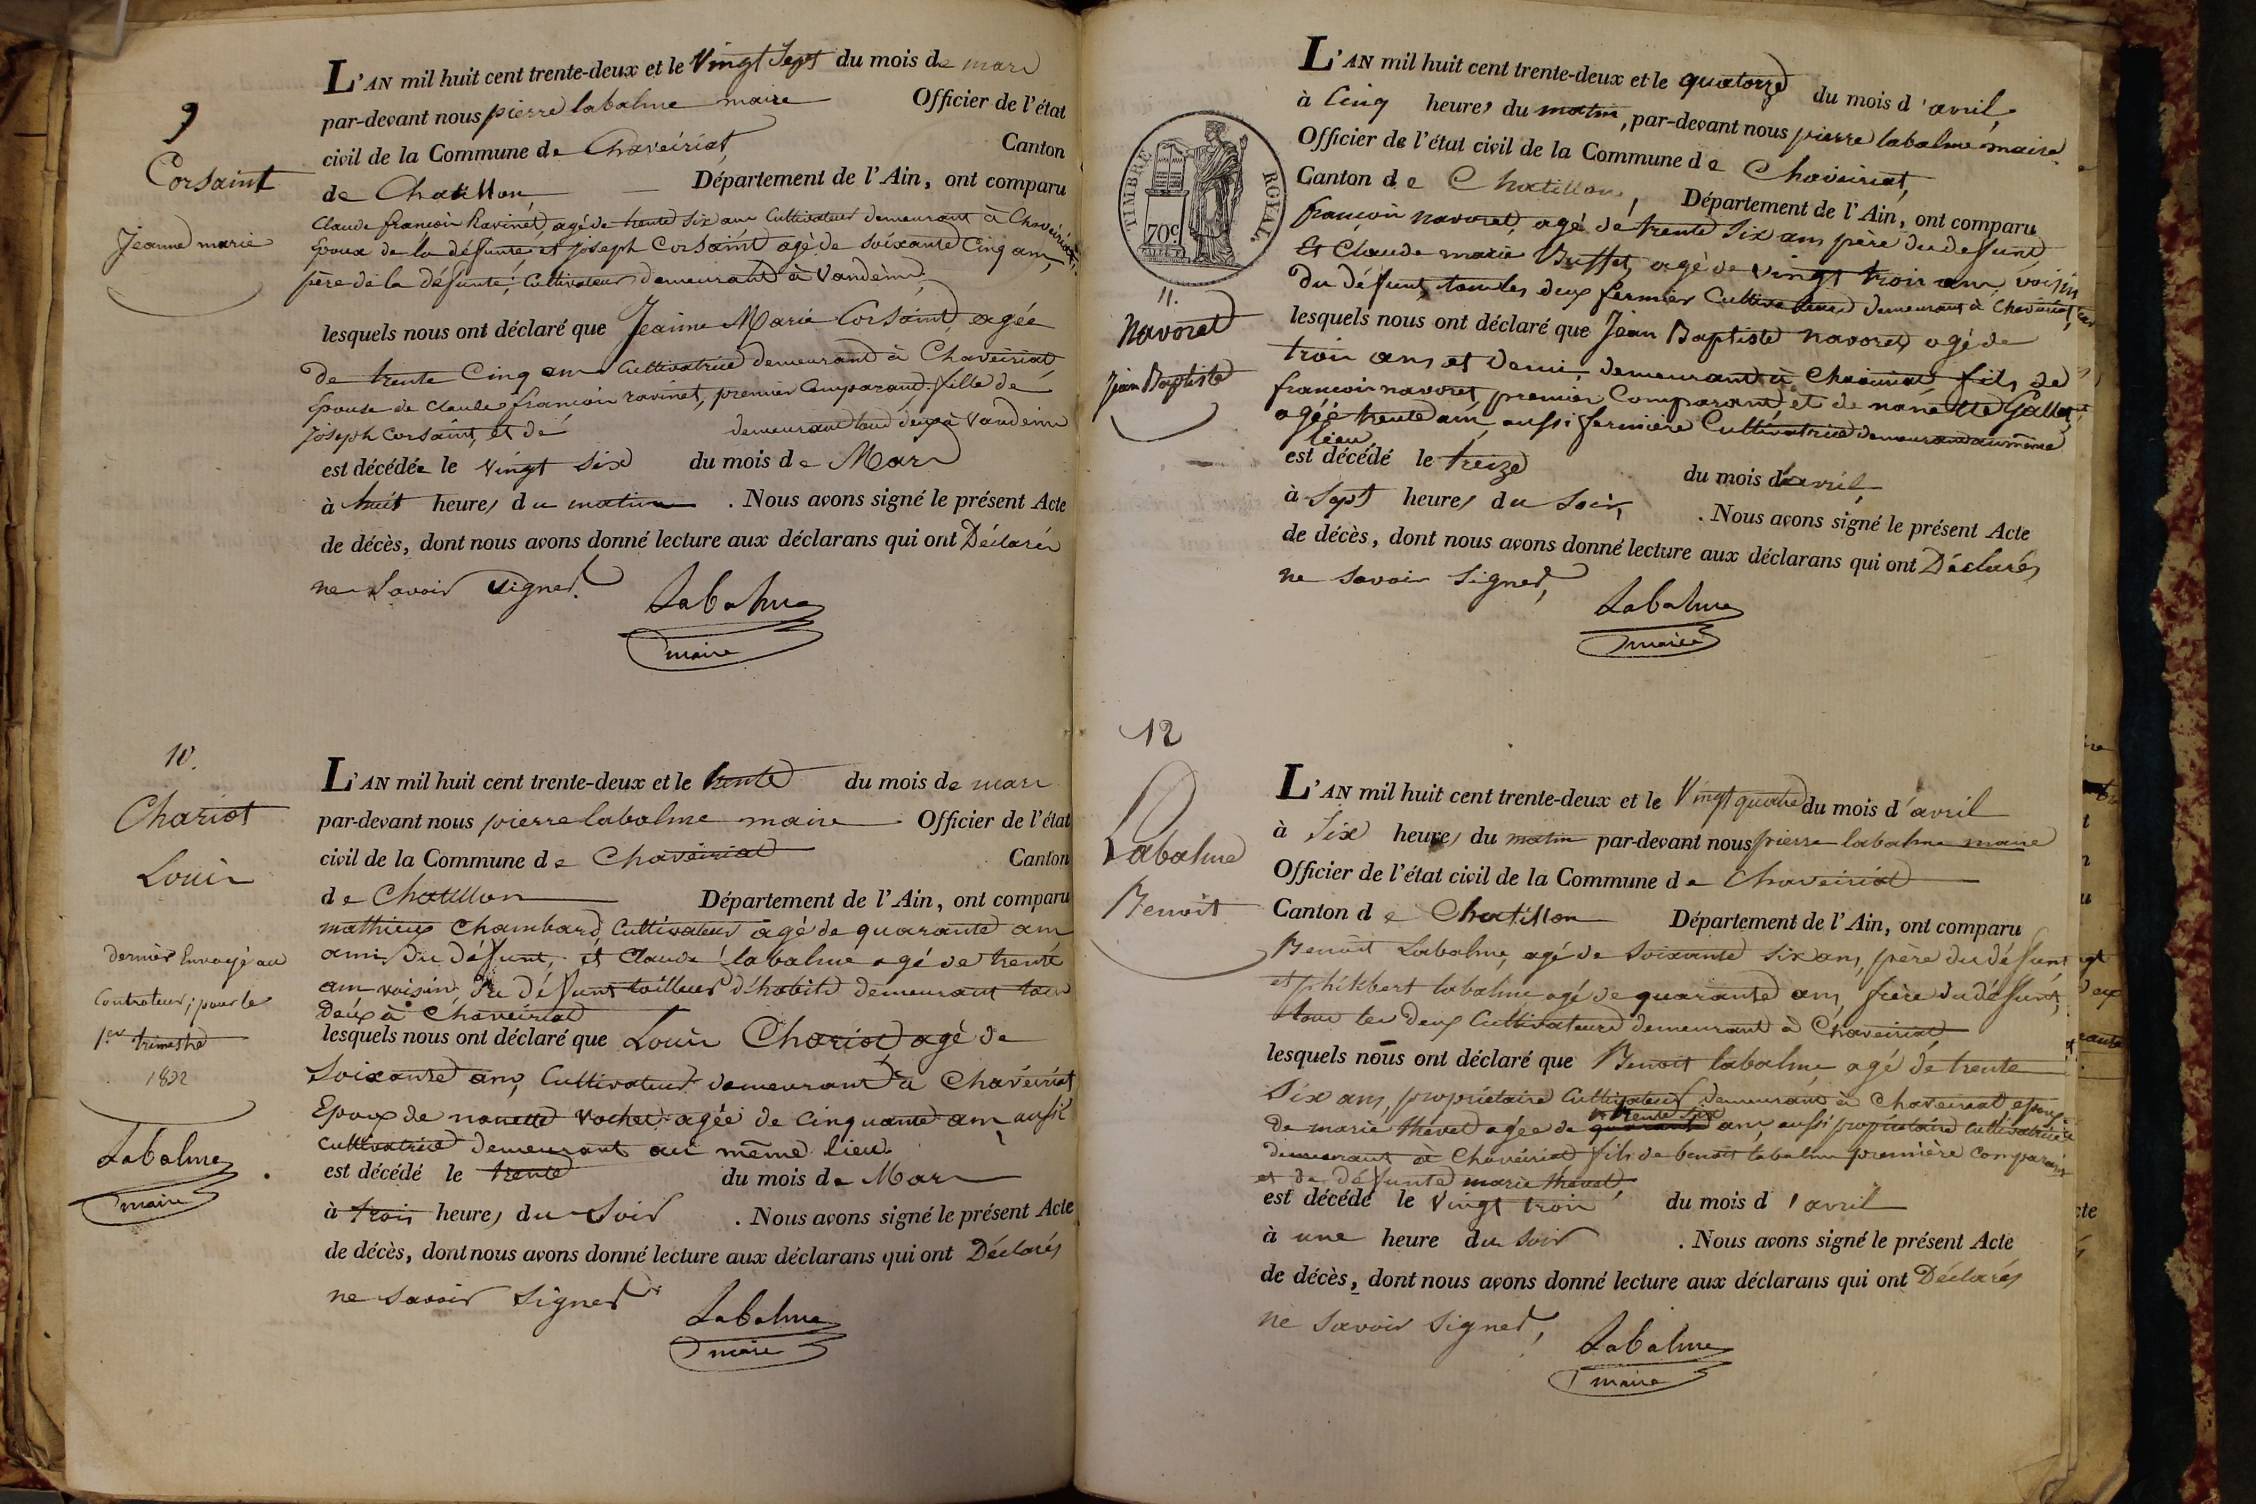 9
Corsaint
Jeanne marie
L'AN mil huit cent trente-deux et le Vingt Sept du mois de mars
par-devant nous pierre labalme maire Officier de l'état
civil de la Commune de Chaveiriat Canton
de Chatillon, Département de l'Ain, ont comparu
Claude françois Ravinet, agé de trente six ans Cultivateur demeurant à Chaveiriat,
Epoux de la défunte, et joseph Corsaint agé de soixante Cinq ans,
père de la défunte, Cultivateur demeurant à Vandeins,
lesquels nous ont déclaré que Jeanne Marie Corsaint, agée
de trente Cinq ans Cultivatrice demeurant à Chaveiriat,
Epouse de Claude françois ravinet, premier Comparant, fille de
Joseph Corsaint, et de demeurant tous deux à Vandeins
est décédée le vingt six du mois de Mars
à huit heures du matin . Nous avons signé le présent Acte
de décès, dont nous avons donné lecture aux déclarans qui ont Déclarés
ne Savoir signer.
Labalme
maire
10.
Chariot
Louis
dernier Envoyé au
Controleur, pour le
1er trimestre
1832
Labalme
maire
L'AN mil huit cent trente-deux et le trente du mois de mars
par-devant nous pierre labalme maire Officier de l'état
civil de la Commune de Chaveiriat Canton
de Chatillon Département de l'Ain, ont comparu
mathieu Chambard Cultivateur agé de quarante ans
ami du défunt, et Claude labalme agé de trente
ans voisin du défunt tailleur d'habits demeurant tous
deux à Chaveiriat
lesquels nous ont déclaré que Louis Chariot agé de
Soixante ans, Cultivateur demeurant à Chaveiriat
Epoux de nanette Vochet agée de cinquante ans aussi
Cultivatrice demeurant au même lieu.
est décédé le trente du mois de Mars
à trois heures du Soir . Nous avons signé le présent Acte
de décès, dont nous avons donné lecture aux déclarans qui ont Déclarés
ne savoir signer
Labalme
maire
TIMBRE ROYAL
70c
11.
Navoret
Jean Baptiste
L'AN mil huit cent trente-deux et le quatorze du mois d'avril,
à Cinq heures du matin, par-devant nous pierre labalme maire
Officier de l'état civil de la Commune de Chaveiriat,
Canton de Chatillon, Département de l'Ain, ont comparu
françois navoret, agé de trente Six ans père du defunt,
Et Claude marie Buffet, agé de vingt trois ans, voisin
du défunt, tous les deux fermier Cultivateurs demeurant à Chaveiriat,
lesquels nous ont déclaré que Jean Baptiste navoret, agé de
trois ans et demi demeurant à Chaveiriat fils de
francois navoret, premier Comparant, et de nanette Gallet,
agée trente ans, aussi fermière Cultivatrice demeurant au même
lieu
est décédé le treize du mois d'avril,
à Sept heures du Soir, . Nous avons signé le présent Acte
de décès, dont nous avons donné lecture aux déclarans qui ont Déclarés
ne savoir signer,
Labalme
maire
12
Labalme
Benoit
L'AN mil huit cent trente-deux et le Vingt quatre du mois d'avril
à Six heures du matin par-devant nous pierre labalme maire
Officier de l'état civil de la Commune de Chaveiriat
Canton de Chatillon Département de l'Ain, ont comparu
Benoit Labalme, agé de Soixante six ans, père du défunt
et philibert labalme agé de quarante ans, frère du défunt,
tous les deux Cultivateurs demeurant à Chaveiriat,
lesquels nous ont déclaré que Benoit labalme agé de trente
Six ans, propriétaire Cultivateur demeurant à Chaveiriat epoux
trente six
de marie thevet agée de quarante ans, aussi propriétaire Cultivatrice
demeurant à Chaveiriat fils de benoit labalme première Comparant
et de défunte marie thevet,
est décédé le vingt trois du mois d'avril
à une heure du Soir . Nous avons signé le présent Acte
de décès, dont nous avons donné lecture aux déclarans qui ont Déclarés
ne savoir signer,
Labalme
maire